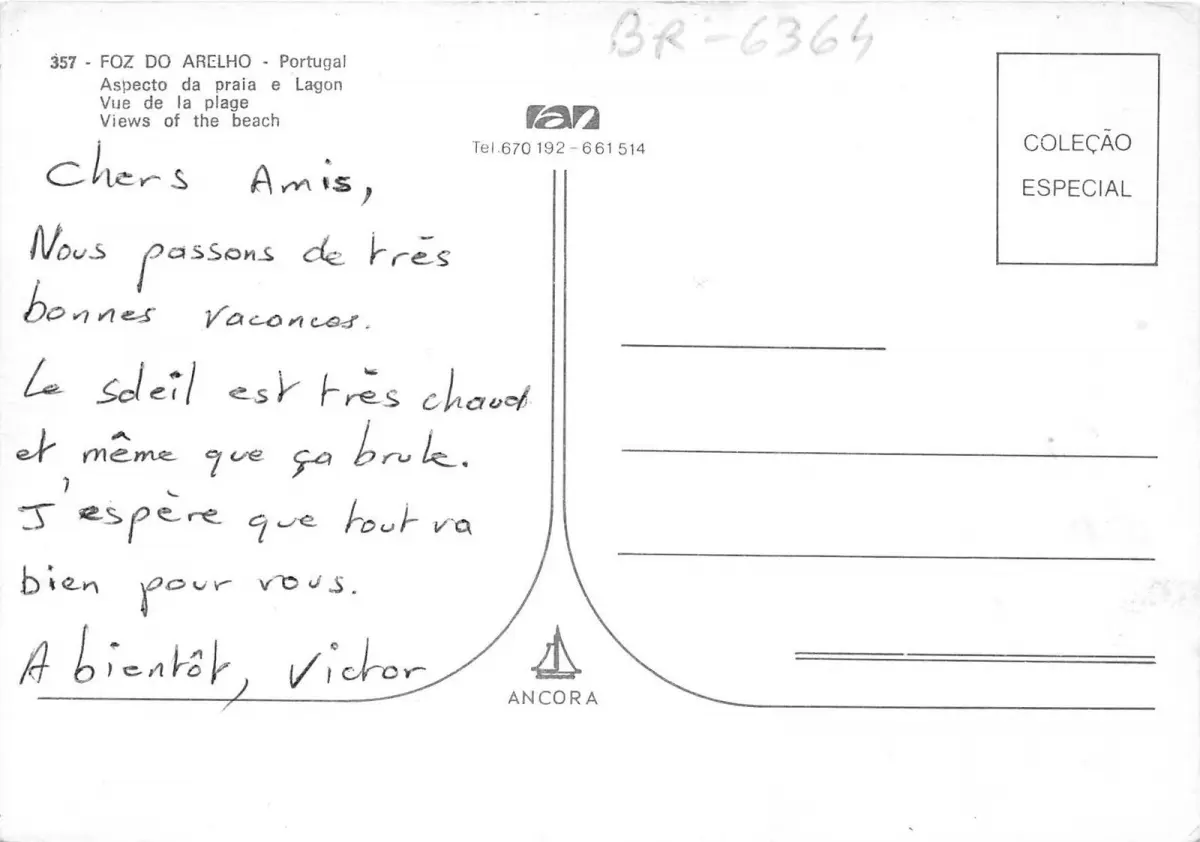 BR-6364
357 - FOZ DO ARELHO - Portugal
Aspecto da praia e Lagon
Vue de la plage
Views of the beach
Tel.670 192-661 514
COLEÇÃO
ESPECIAL
Chers Amis,
Nous passons de très
bonnes vacances.
Le soleil est très chaud
et même que ça brule.
J'espère que tout va
bien pour vous.
A bientôt, Victor
ANCORA